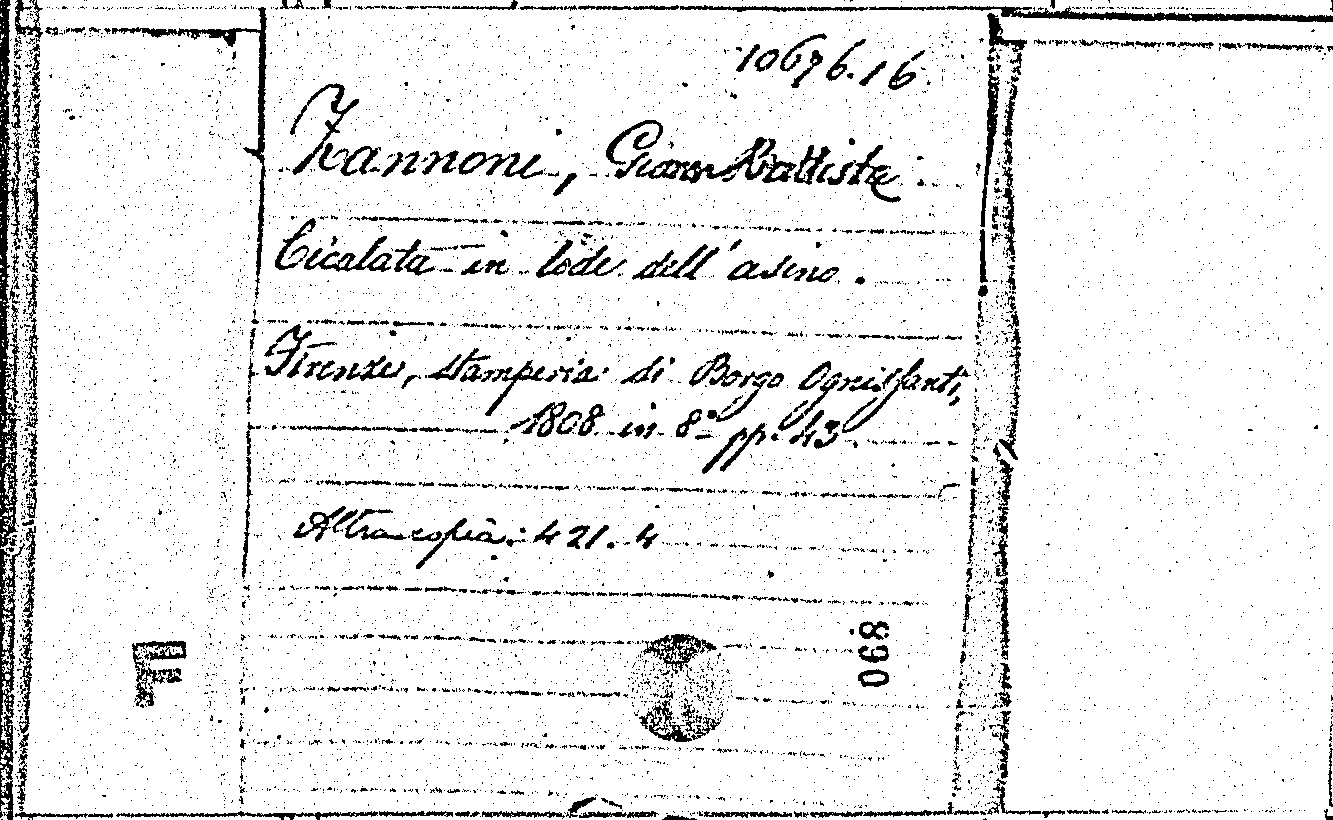 10676.16
Zannoni, Giovan Battista.
Cicalata in lode dell'asino.
Firenze, stamperia di Borgo Ognissanti,
1808 in 8º pp. 43.
Altra copia: 421.4
F
068